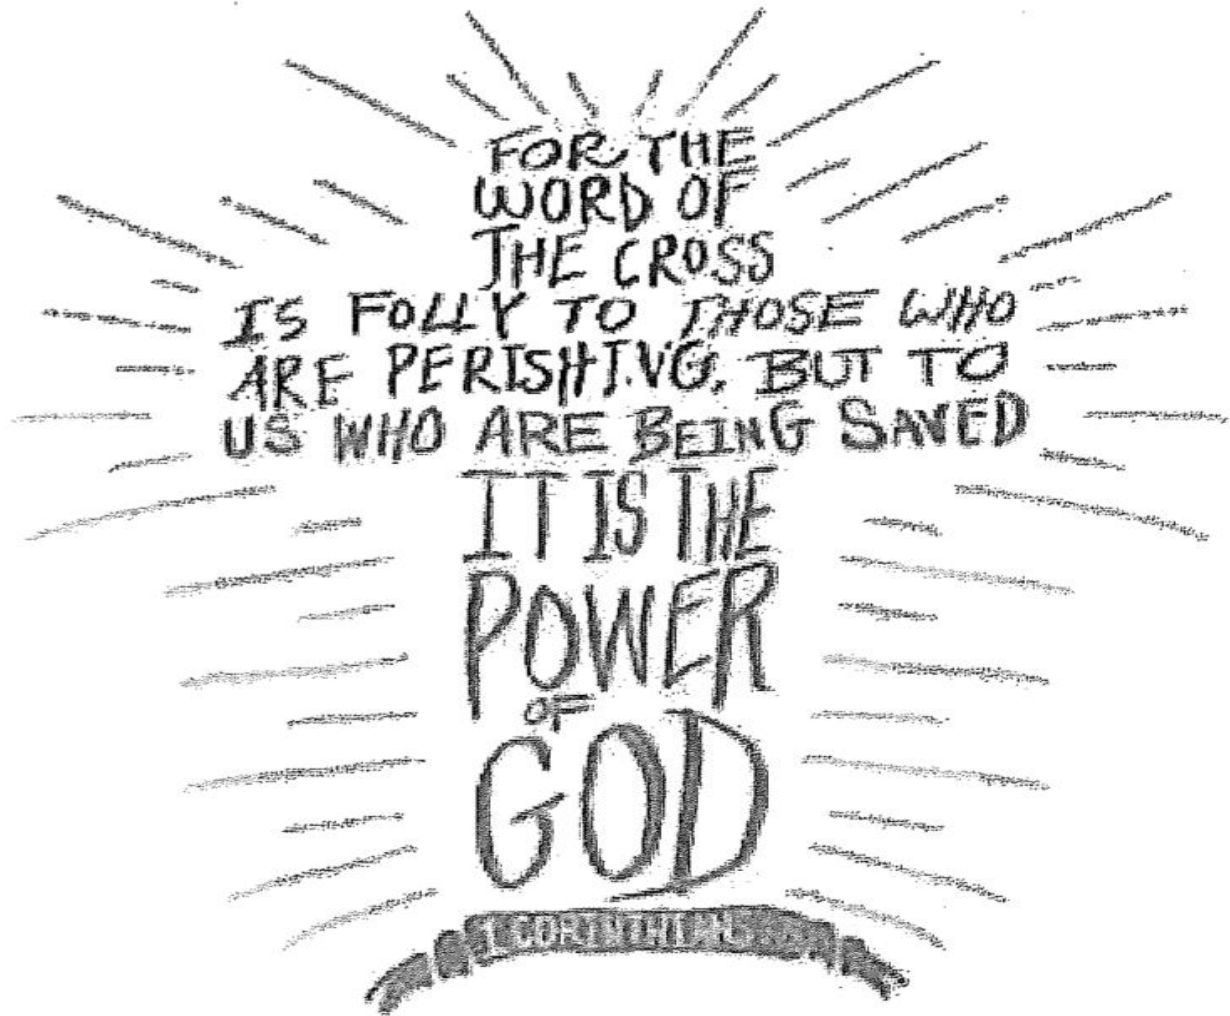 FOR THE
WORD OF
THE CROSS
IS FOLLY TO THOSE WHO
ARE PERISHING, BUT TO
US WHO ARE BEING SAVED
IT IS THE
POWER
OF
GOD
1 CORINTHIANS